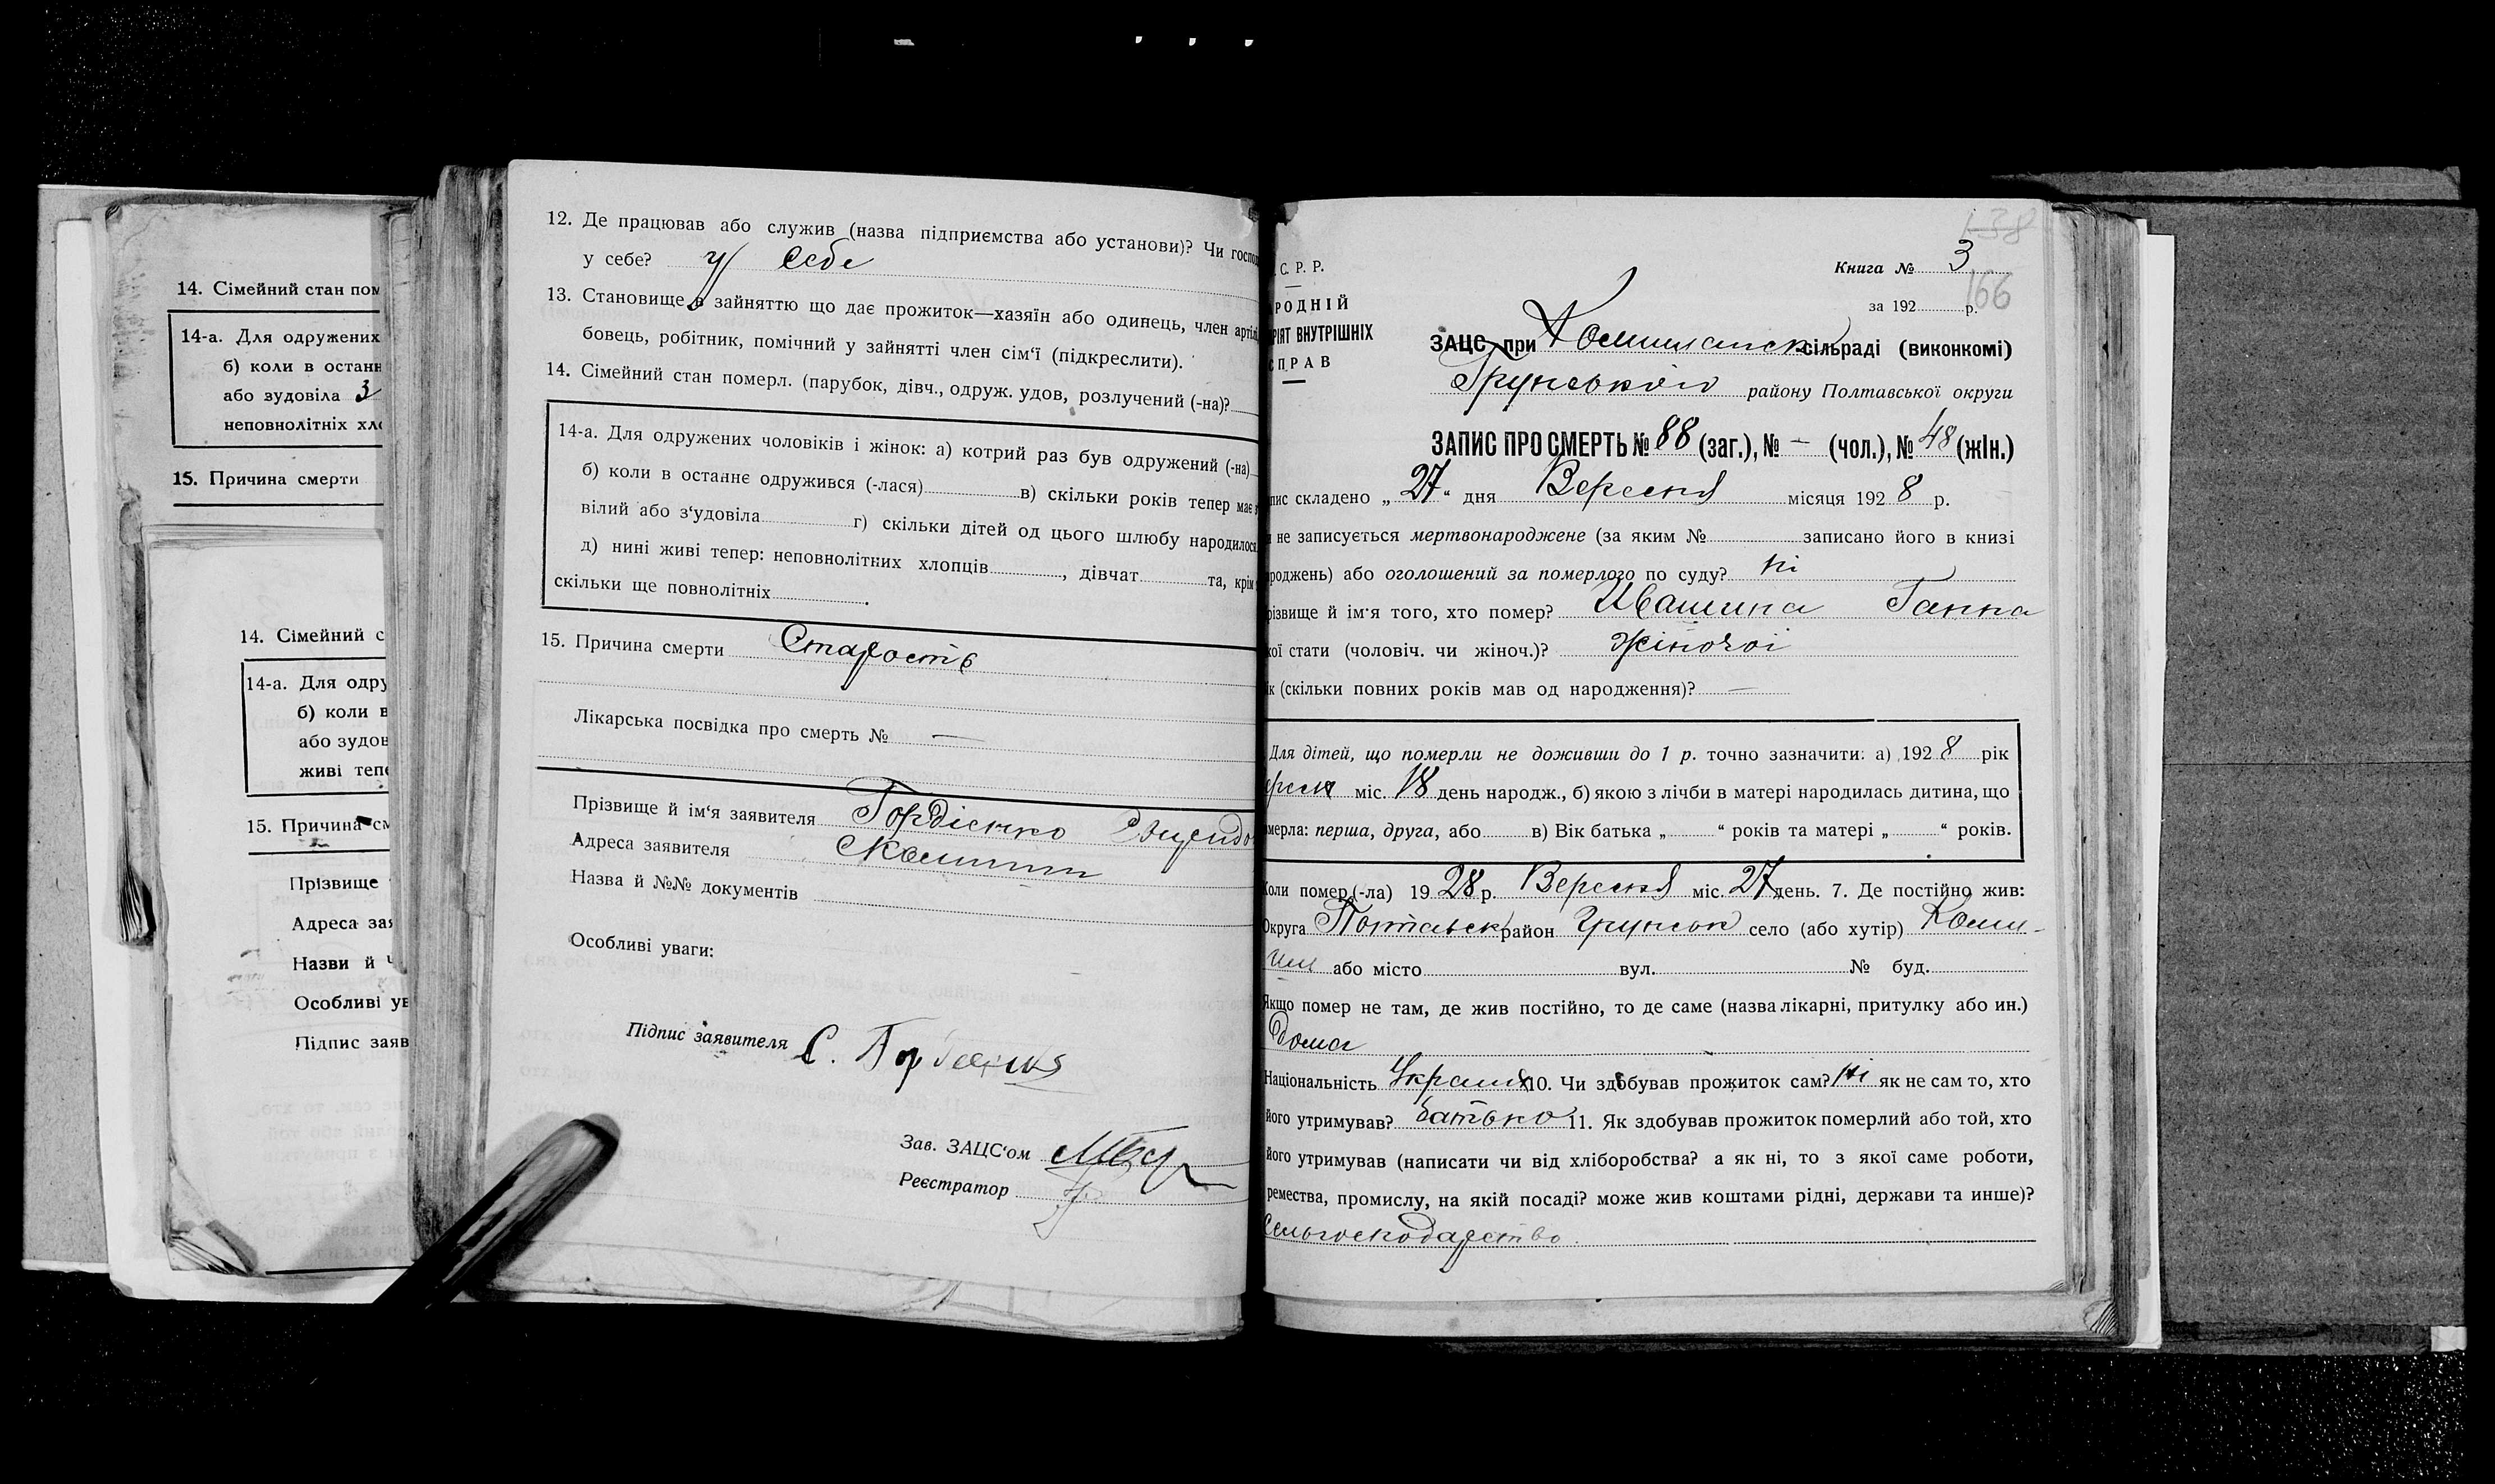 14. Сімейний стан пом
14-а. Для одружених
б) коли в останн
або зудовіла 3
неповнолітніх хл
15. Причина смерти
14. Сімейний с
14-а. Для одру
б) коли в
або зудов
живі тепе
15. Причина см
Прізвище
Адреса зая
Назви й
Особливі ув
Підпис заяв
12. Де працював або служив (назва підприємства або установи)? Чи господ
у себе? у себе
13. Становище в зайняттю що дає прожиток—хазяїн або одинець, член артілі
бовець, робітник, помічний у зайнятті член сім‘ї (підкреслити).
14. Сімейний стан померл. (парубок, дівч., одруж. удов, розлучений (-на)?
14-а. Для одружених чоловіків і жінок: а) котрий раз був одружений (-на)
б) коли в останнє одружився (-лася) в) скільки років тепер має
вілий або з‘удовіла г) скільки дітей од цього шлюбу народилося
д) нині живі тепер: неповнолітних хлопців, дівчат та, крім
скільки ще повнолітніх.
15. Причина смерти Старость
Лікарська посвідка про смерть № —
Прізвище й ім‘я заявителя Гордієнко
Адреса заявителя
Назва й №№ документів
Особливі уваги:
Підпис заявителя С.
Зав. ЗАЦС‘ом
Реєстратор
138
Книга № 3
166
С. Р. Р.
за 192 р.
РОДНІЙ
РІЯТ ВНУТРІШНІХ
СПРАВ
ЗАЦС при Комишанск сільраді (виконкомі)
Грунського району Полтавської округи
ЗАПИС ПРО СМЕРТЬ № 88 (заг.), № — (чол.), № 48 (жін.)
пис складено „ 27 “ дня Вересня місяця 192 8 р.
не записується мертвонароджене (за яким № записано його в книзі
роджень) або оголошений за померлого по суду? ні
різвище й ім‘я того, хто помер? Ивашина Ганна
кої стати (чоловіч. чи жіноч.)? жіночої
ік (скільки повних років мав од народження)? —
Для дітей, що померли не доживши до 1 р. точно зазначити: а) 192 8 рік
міс. 18 день народж., б) якою з лічби в матері народилась дитина, що
мерла: перша, друга, або в) Вік батька „ “ років та матері „ “ років.
Коли помер (-ла) 19 28 р. Вересня міс. 27 день. 7. Де постійно жив:
Округа Полтавськ район Грунськ село (або хутір) Коми-
ши або місто вул. № буд.
Якщо помер не там, де жив постійно, то де саме (назва лікарні, притулку або ин.)
Дома
Національність Україн 10. Чи здобував прожиток сам? Ні як не сам то, хто
його утримував? батько 11. Як здобував прожиток померлий або той, хто
його утримував (написати чи від хліборобства? а як ні, то з якої саме роботи,
ремества, промислу, на якій посаді? може жив коштами рідні, держави та инше)?
сельгосподарство